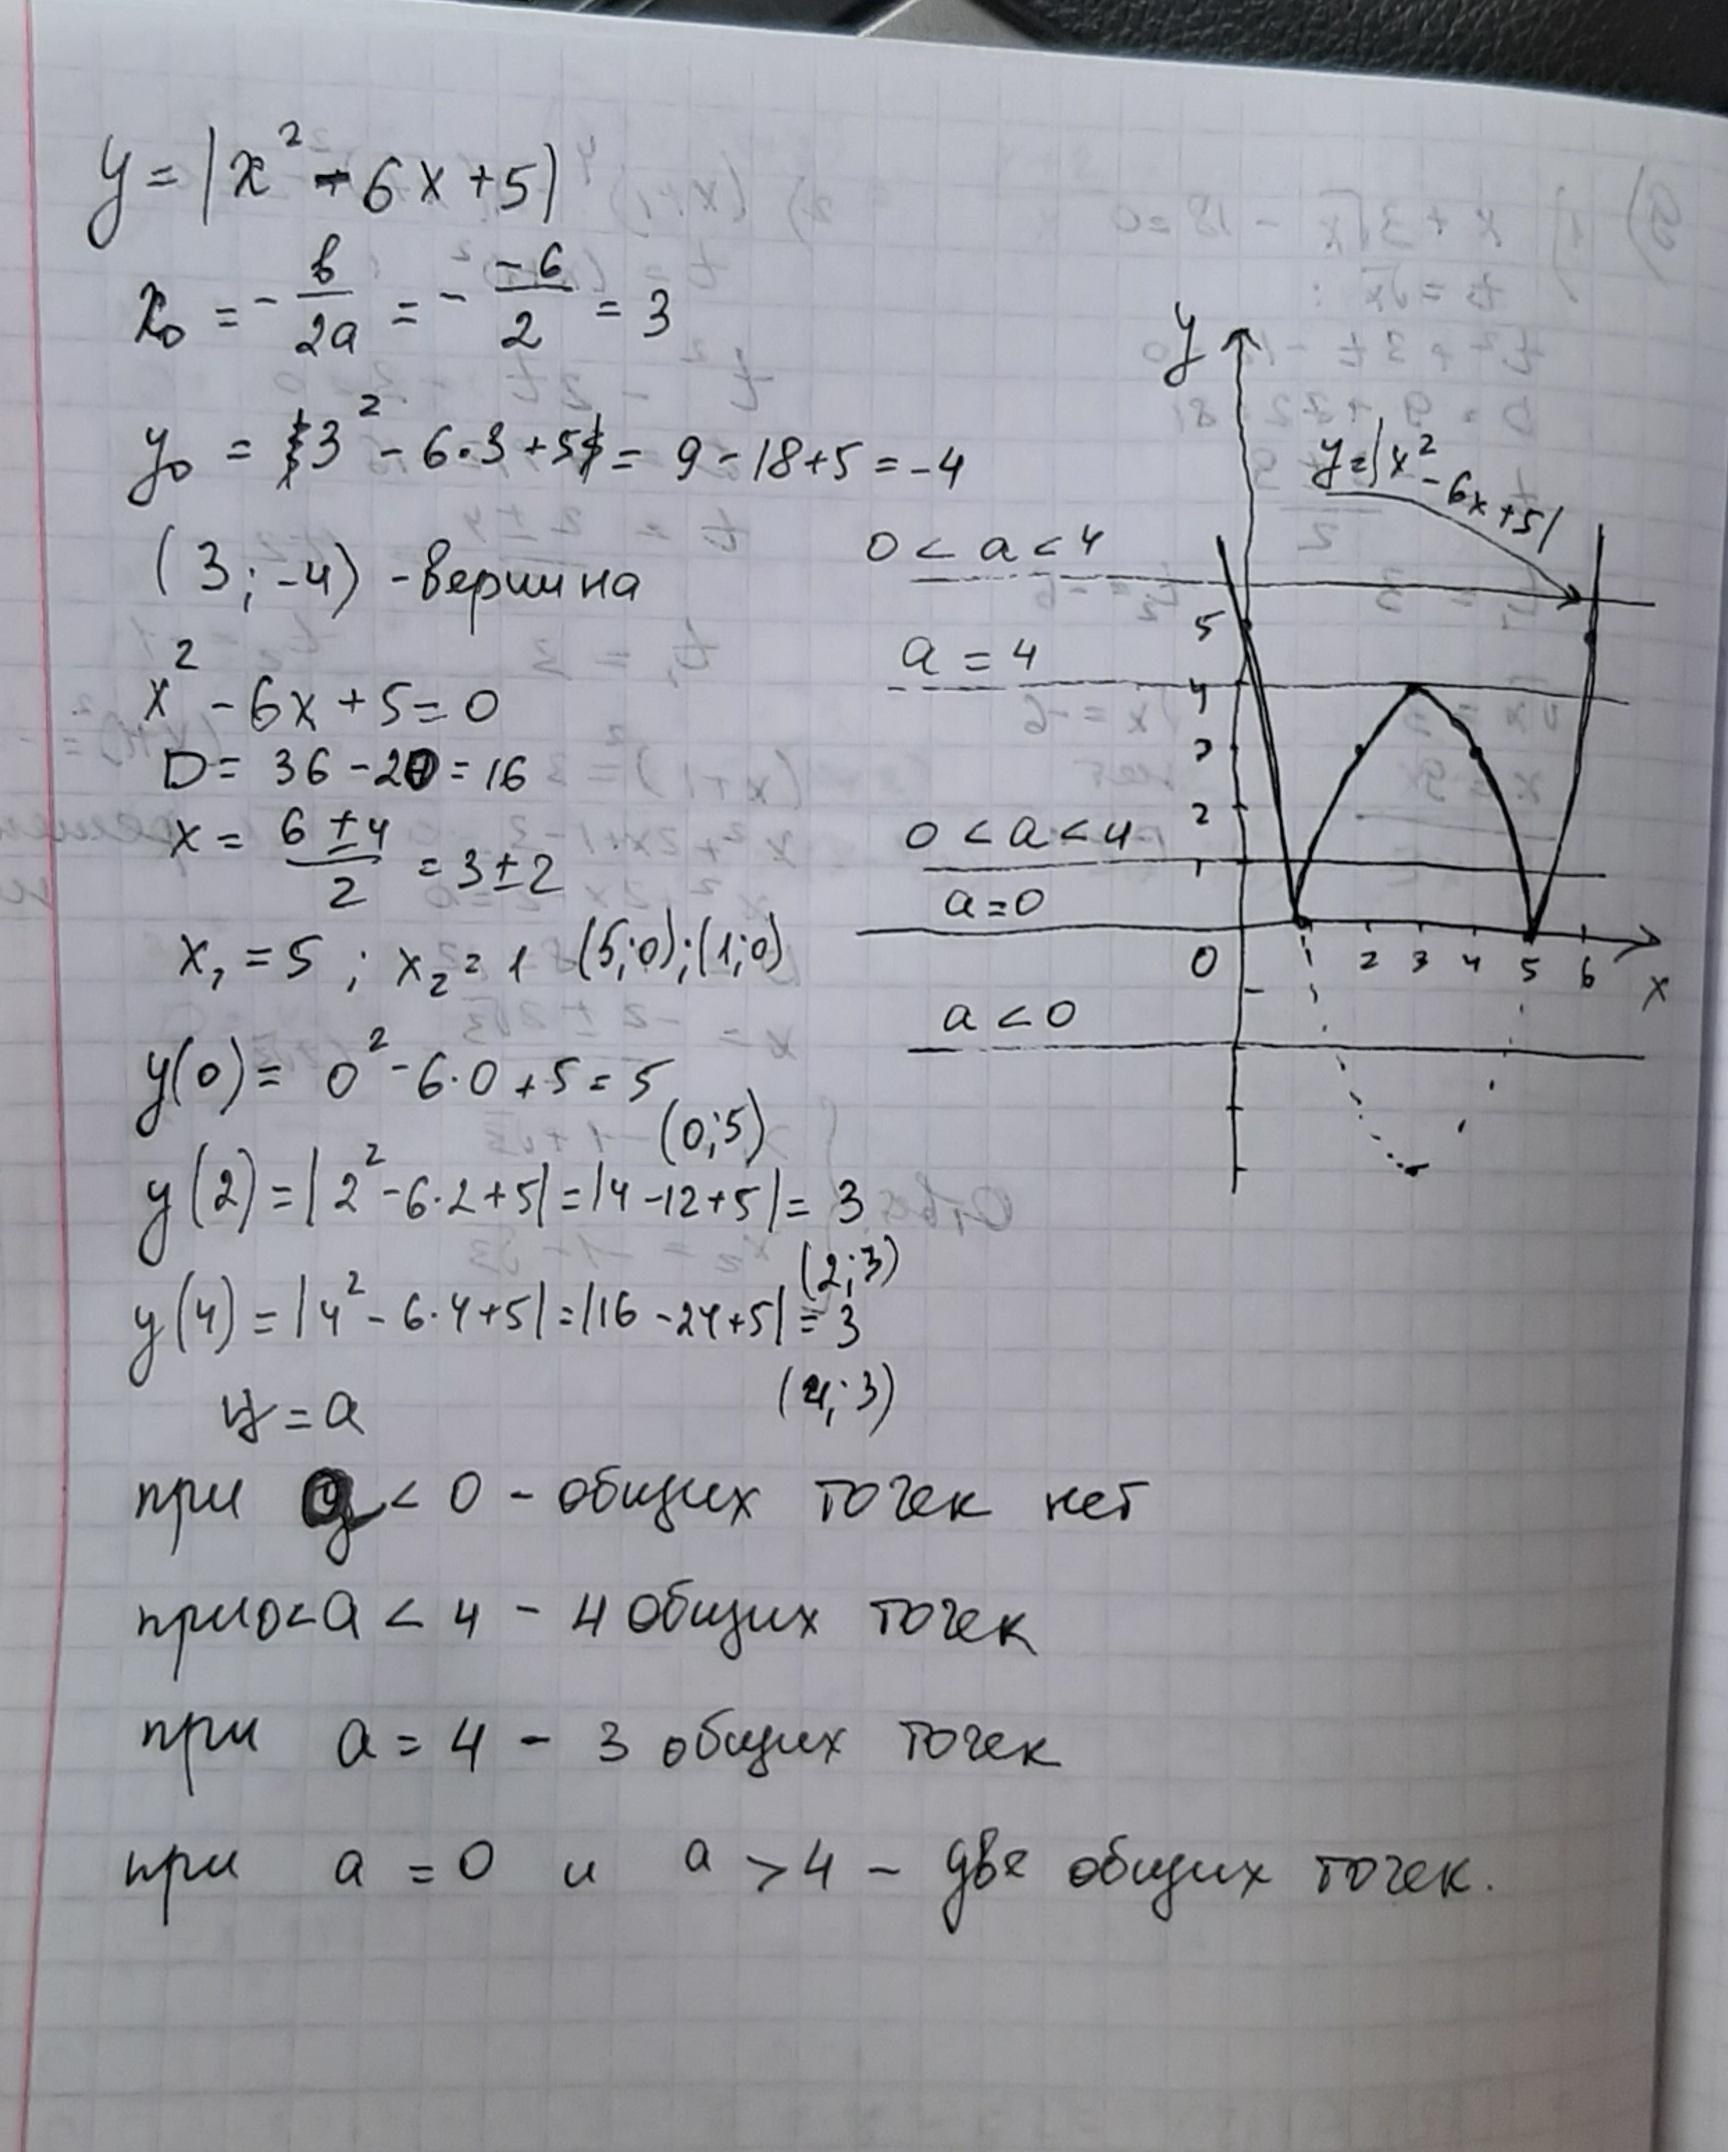 y = |x² - 6x + 5|
x₀ = - в/2a = - -6/2 = 3
y₀ = 3² - 6·3 + 5 = 9 - 18 + 5 = -4
(3; -4) - вершина
x² - 6x + 5 = 0
D = 36 - 20 = 16
x = 6 ± 4 / 2 = 3 ± 2
x₁ = 5 ; x₂ = 1 (5;0);(1;0)
y(0) = 0² - 6·0 + 5 = 5
(0;5)
y(2) = |2² - 6·2 + 5| = |4 - 12 + 5| = 3
(2;3)
y(4) = |4² - 6·4 + 5| = |16 - 24 + 5| = 3
(4;3)
y = a
при a < 0 - общих точек нет
при 0 < a < 4 - 4 общих точек
при a = 4 - 3 общих точек
при a = 0 и a > 4 - две общих точек.
y
y = |x² - 6x + 5|
0 < a < 4
5
a = 4
4
3
2
0 < a < 4
1
a = 0
0 1 2 3 4 5 6 x
a < 0